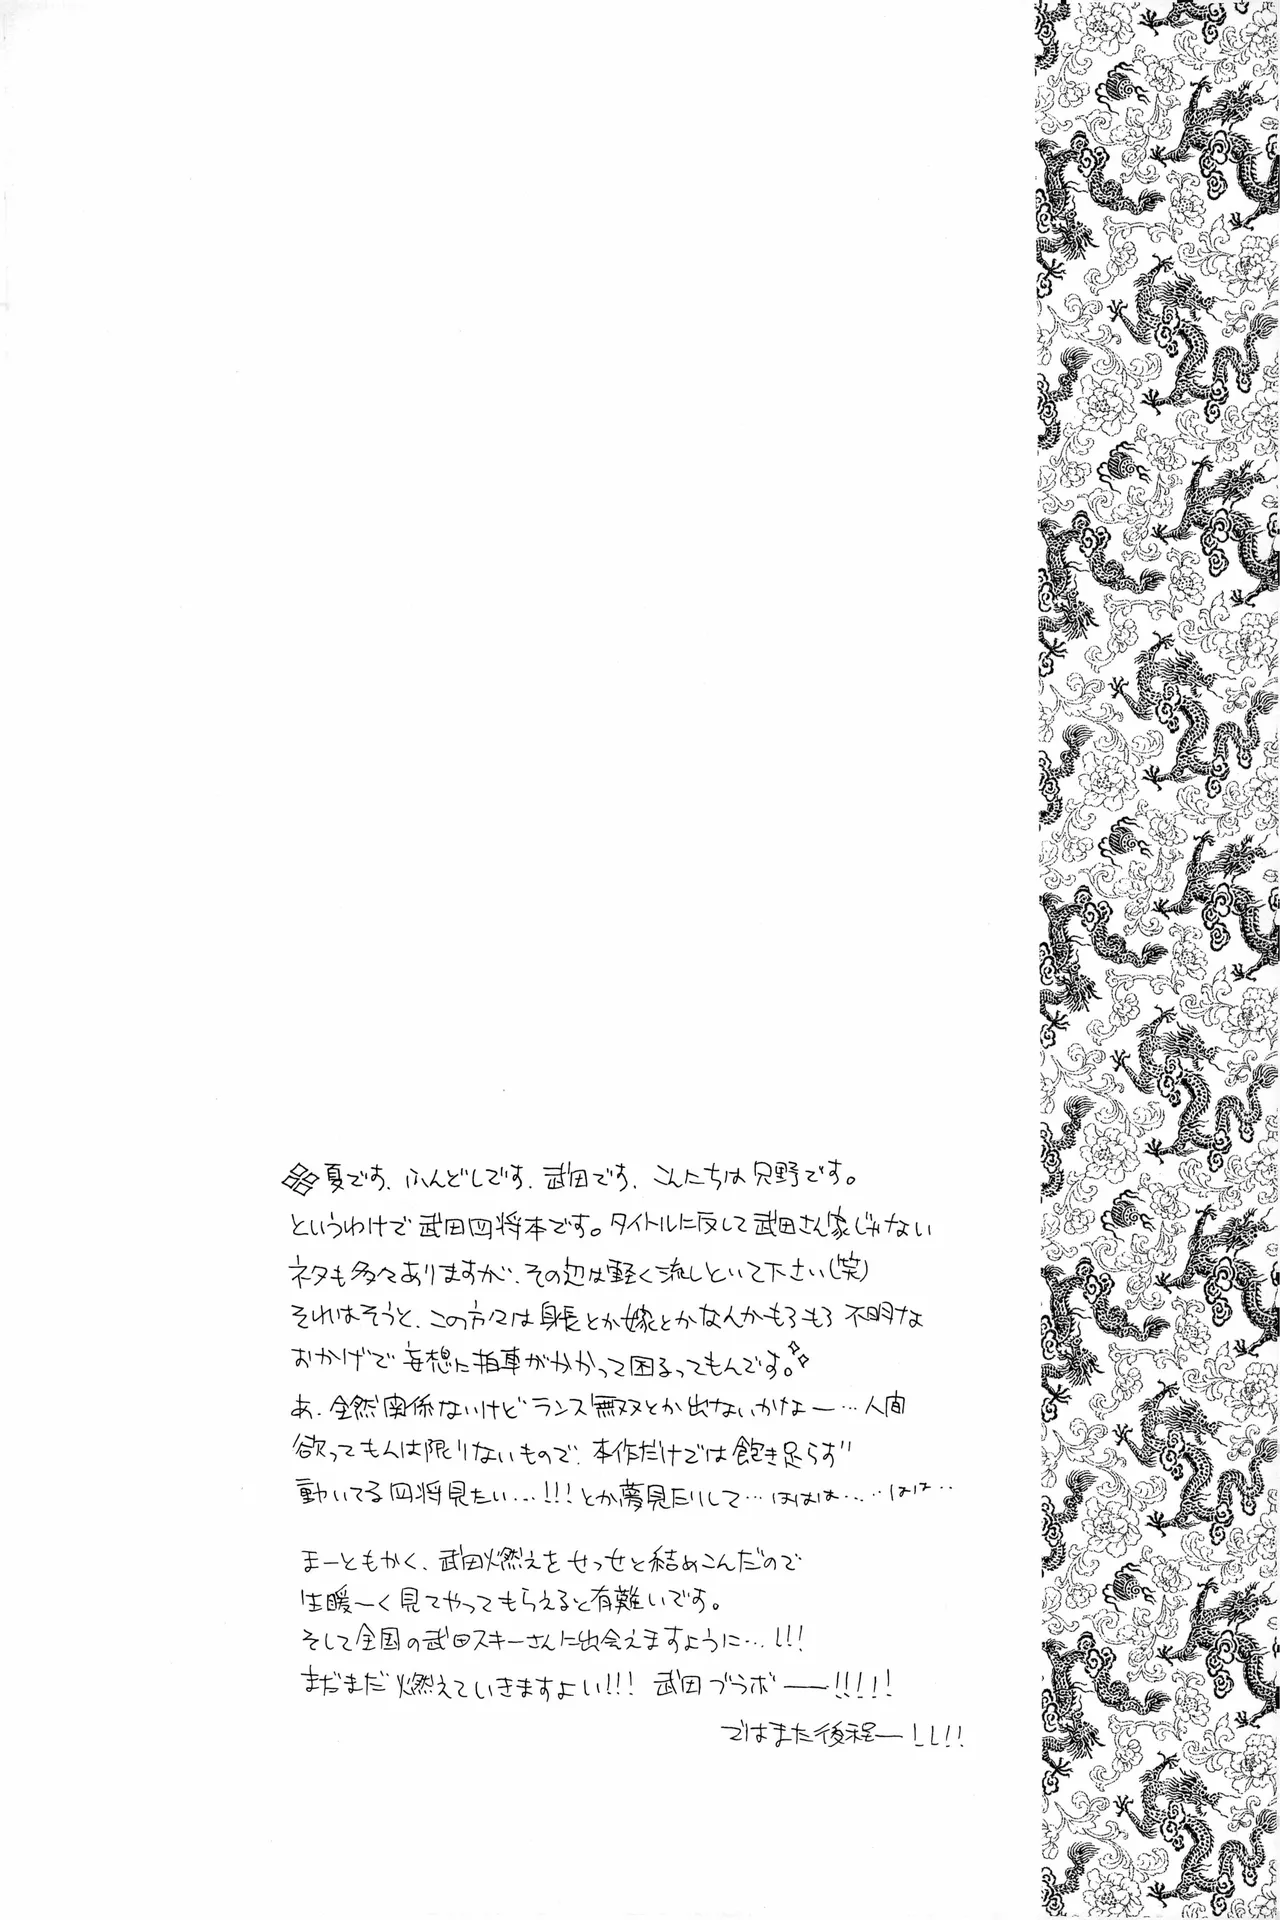 夏です、ふんどしです、武田です、こんにちは只野です。
というわけで武田四将本です。タイトルに反して武田さん家じゃない
ネタも多々ありますが、その辺は軽く流しといて下さい(笑)
それはそうと、この方々は身長とか嫁とかなんかもろもろ不明な
おかげで妄想に拍車がかかって困るってもんです。
あ、全然関係ないけどランス無双とか出ないかなー…人間
欲ってもんは限りないもので、本作だけでは飽き足らず
動いてる四将見たい…!!!とか夢見たりして…ははは……はは‥
まーともかく、武田燃えをせっせと詰めこんだので
生暖ーく見てやってもらえると有難いです。
そして全国の武田スキーさんに出会えますように…!!!
まだまだ燃えていきますよい!!! 武田ブラボー!!!!!
ではまた後程ー!!!!